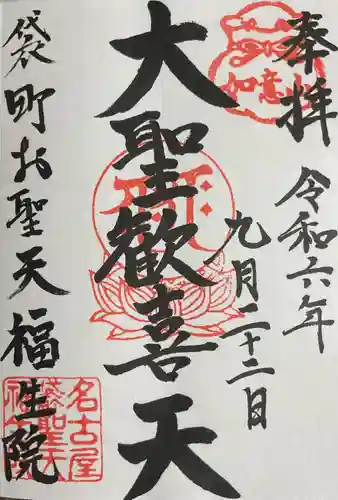 奉拝
令和六年
九月二十二日
大聖歓喜天
袋町お聖天福生院
如意
名古屋
袋聖天